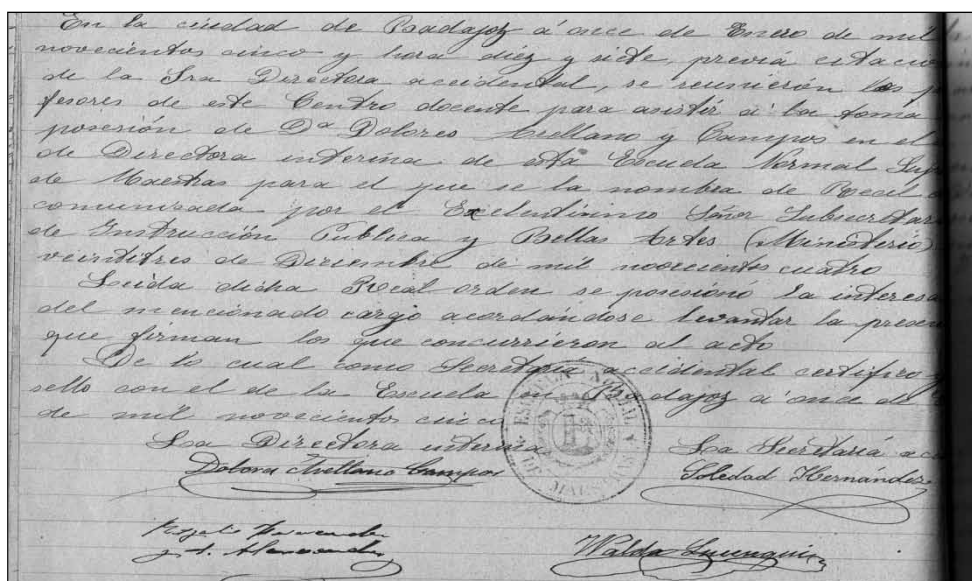 En la ciudad de Badajoz á once de Enero de mil
novecientos cinco y hora diéz y siete, previa citacio
de la Sra Directora accidental, se reunierón los p
fesores de este Centro docente para asistir á la toma
posesión de Dª Dolores Arellano y Campos en el
de Directora interina de esta Escuela Normal Sup
de Maestras para el que se la nombra de Real
comunicada por el Excelentísimo Señor Subsecretar
de Instrucción Publica y Bellas Artes (Ministerio)
veintitres de Diciembre de mil novecientos cuatro
Leida dicha Real orden se posesionó la interesa
del mencionado cargo acordándose levantar la presen
que firman los que concurrieron al acto
De lo cual como Secretaria accidental certifico y
sello con el de la Escuela en Badajoz á once de
de mil novecientos cinco
La Directora interina La Secretaria acc
Dolores Arellano Campos Soledad Hernández
ESCUELA NORMAL DE MAESTRAS
Walda Lucenqui